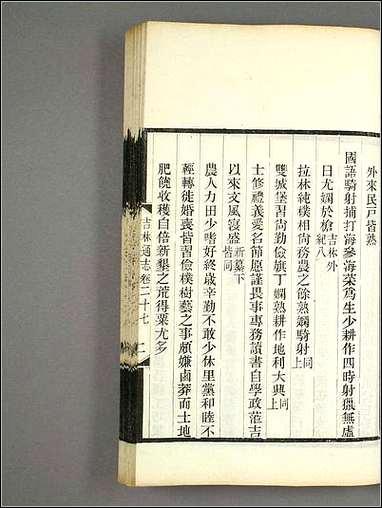 外來民戶皆熟
國語騎射捕打海參海菜爲生少耕作四時射獵無虛
日尤嫻於槍吉林外紀八
拉林純樸相尙務農之餘熟嫻騎射同上
雙城堡習尙勤儉旗丁嫻熟耕作地利大興同上
士修禮義愛名節愿謹畏事專務讀書自學政蒞吉
以來文風寖盛祈纂下皆同
農人力田少嗜好終歲辛勤不敢少休里黨和睦不
輕轉徙婚喪皆習儉樸樹藝之事頗嫌鹵莽而土地
肥饒收穫自倍新墾之荒得粟尤多
吉林通志卷二十七